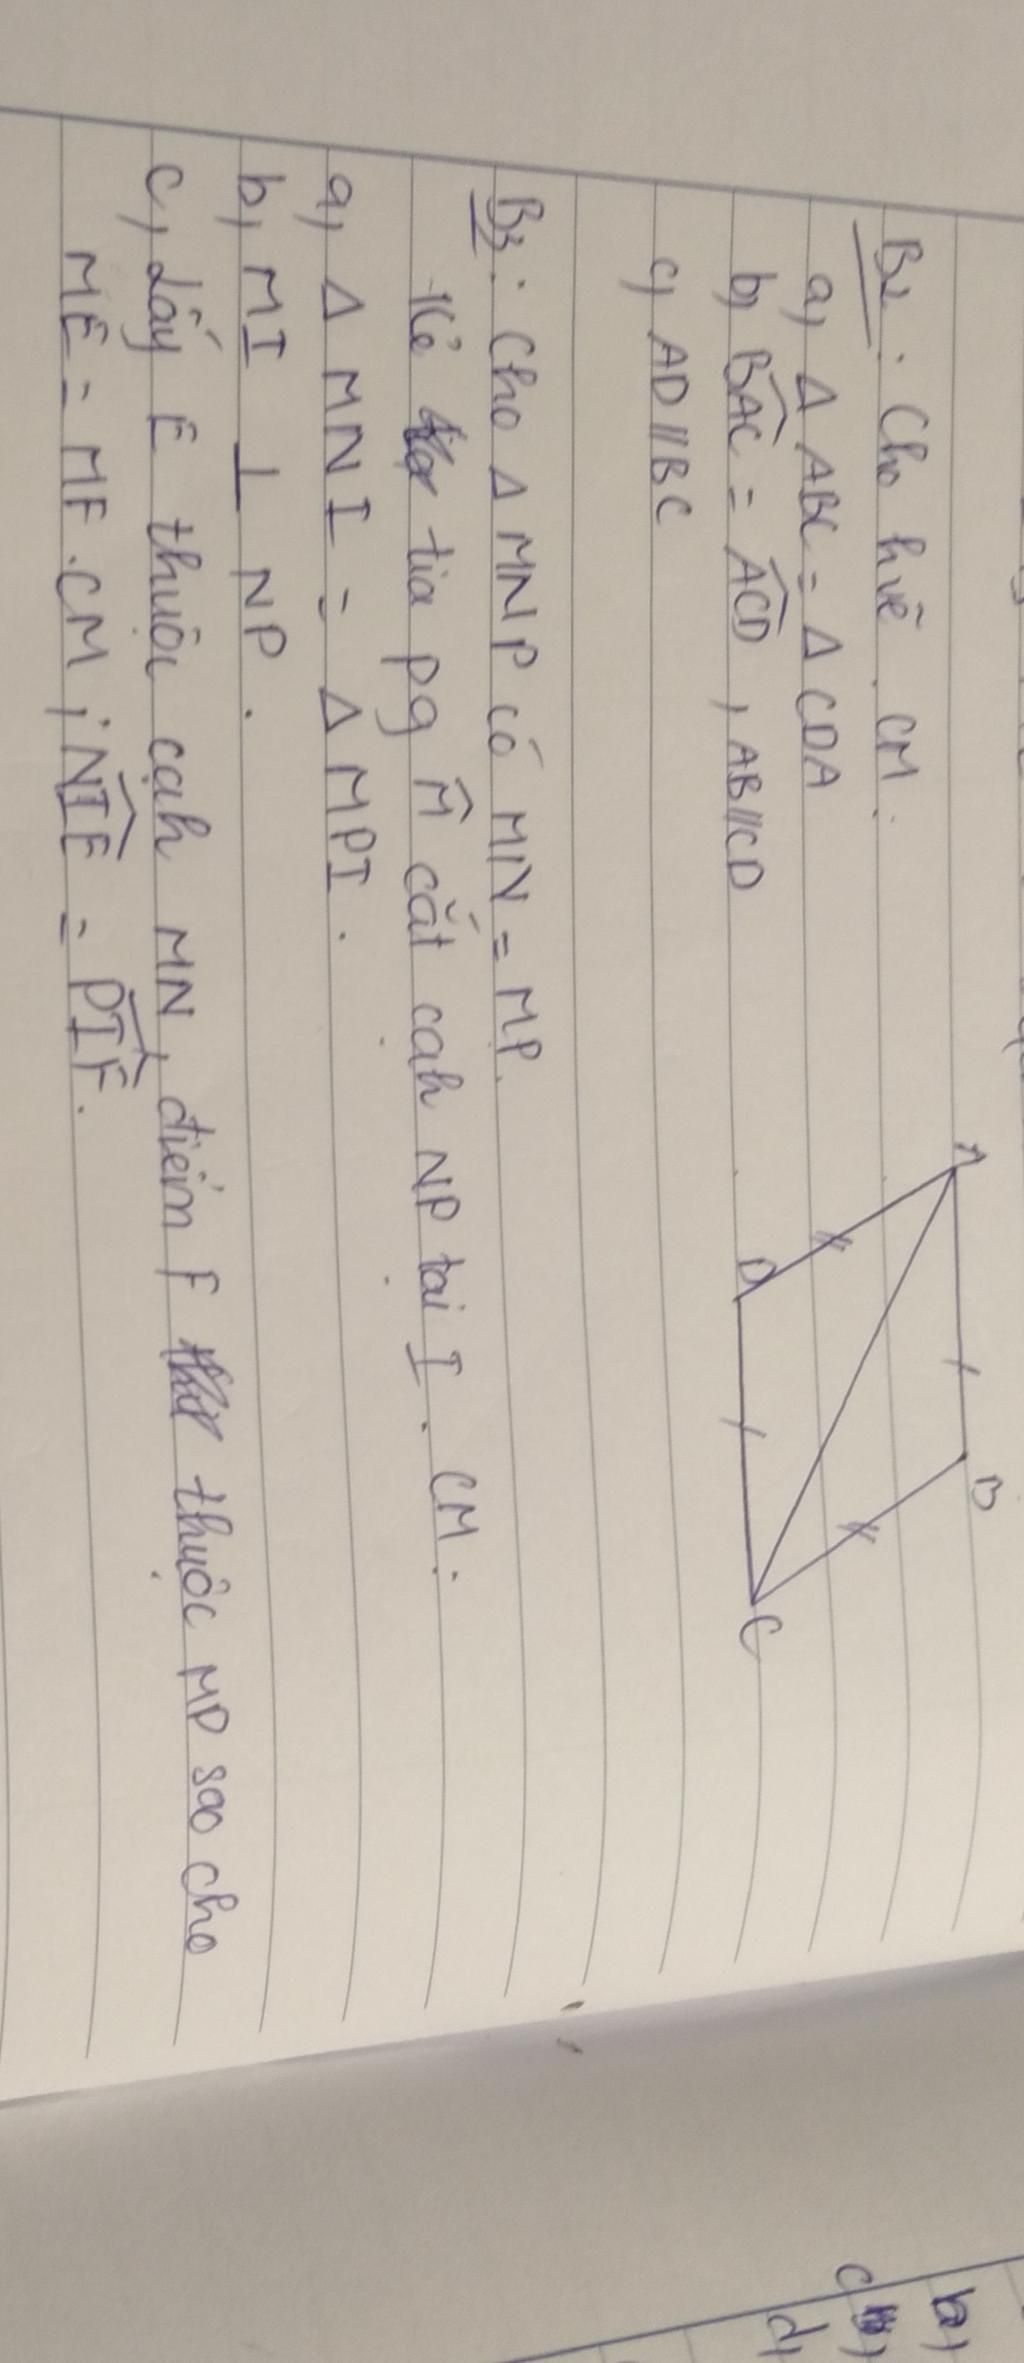 B2. Cho hvẽ. CM:
a, Δ ABC = Δ CDA
b, BAC = ACD, AB//CD
c, AD//BC
A
B
D
C
B3: Cho Δ MNP có MN = MP.
Kẻ tia pg M cắt cạh NP tại I. CM:
a, Δ MNI = Δ MPI.
b, MI ⊥ NP.
c, Lấy E thuộc cạh MN, điểm F thuộc MP sao cho
ME = MF. CM; NIE = PIF.
b,
c,
d,